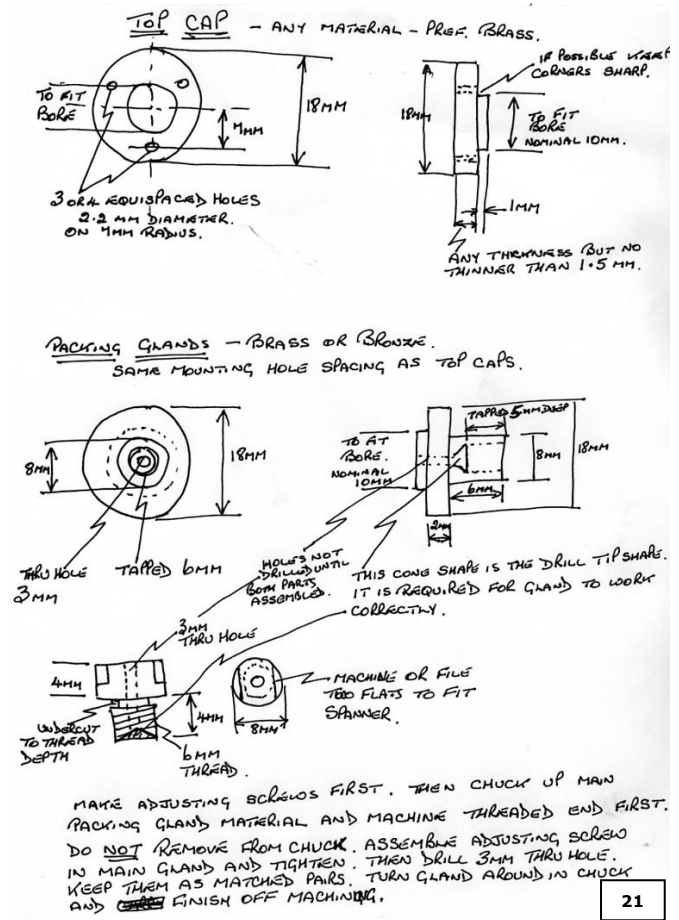 TOP CAP - ANY MATERIAL - PREF. BRASS.
IF POSSIBLE KEEP
CORNERS SHARP.
TO FIT
BORE
7MM
18MM
18MM
TO FIT
BORE
NOMINAL 10MM.
3 OR 4 EQUISPACED HOLES
2.2 MM DIAMETER.
ON 7MM RADIUS.
1MM
ANY THICKNESS BUT NO
THINNER THAN 1.5 MM.
PACKING GLANDS - BRASS OR BRONZE.
SAME MOUNTING HOLE SPACING AS TOP CAPS.
8MM
18MM
THRU HOLE
3MM
TAPPED 6MM
TAPPED 5MM DEEP
TO FIT
BORE.
NOMINAL
10MM
8MM
18MM
6MM
2MM
HOLES NOT
DRILLED UNTIL
BOTH PARTS
ASSEMBLED.
THIS CONE SHAPE IS THE DRILL TIP SHAPE.
IT IS REQUIRED FOR GLAND TO WORK
CORRECTLY.
3MM
THRU HOLE
4MM
UNDERCUT
TO THREAD
DEPTH
4MM
6MM
THREAD.
8MM
MACHINE OR FILE
TWO FLATS TO FIT
SPANNER.
MAKE ADJUSTING SCREWS FIRST. THEN CHUCK UP MAIN
PACKING GLAND MATERIAL AND MACHINE THREADED END FIRST.
DO NOT REMOVE FROM CHUCK. ASSEMBLE ADJUSTING SCREW
IN MAIN GLAND AND TIGHTEN. THEN DRILL 3MM THRU HOLE.
KEEP THEM AS MATCHED PAIRS. TURN GLAND AROUND IN CHUCK
AND FINISH OFF MACHINING.
21